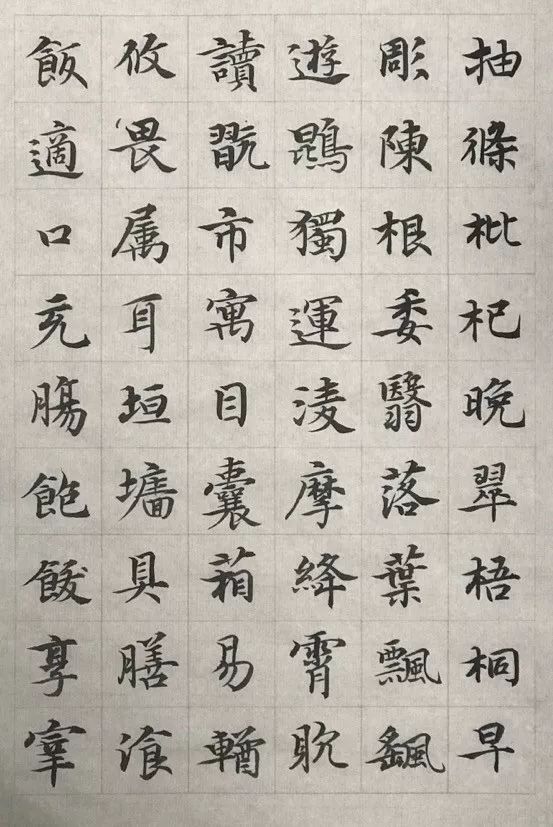 抽條枇杞晚翠梧桐早
彫陳根委翳落葉飄颻
遊鵾獨運淩摩絳霄耽
讀翫市寓目囊箱易輶
攸畏属耳垣墻具膳飡
飯適口充腸飽飫享宰